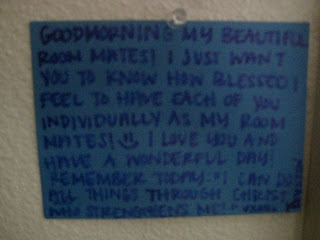 GOODMORNING MY BEAUTIFUL
ROOM MATES! I JUST WANT
YOU TO KNOW HOW BLESSED I
FEEL TO HAVE EACH OF YOU
INDIVIDUALLY AS MY ROOM
MATES! I LOVE YOU AND
HAVE A WONDERFUL DAY!
REMEMBER TODAY "I CAN DO
ALL THINGS THROUGH CHRIST
WHO STRENGTHENS ME!"